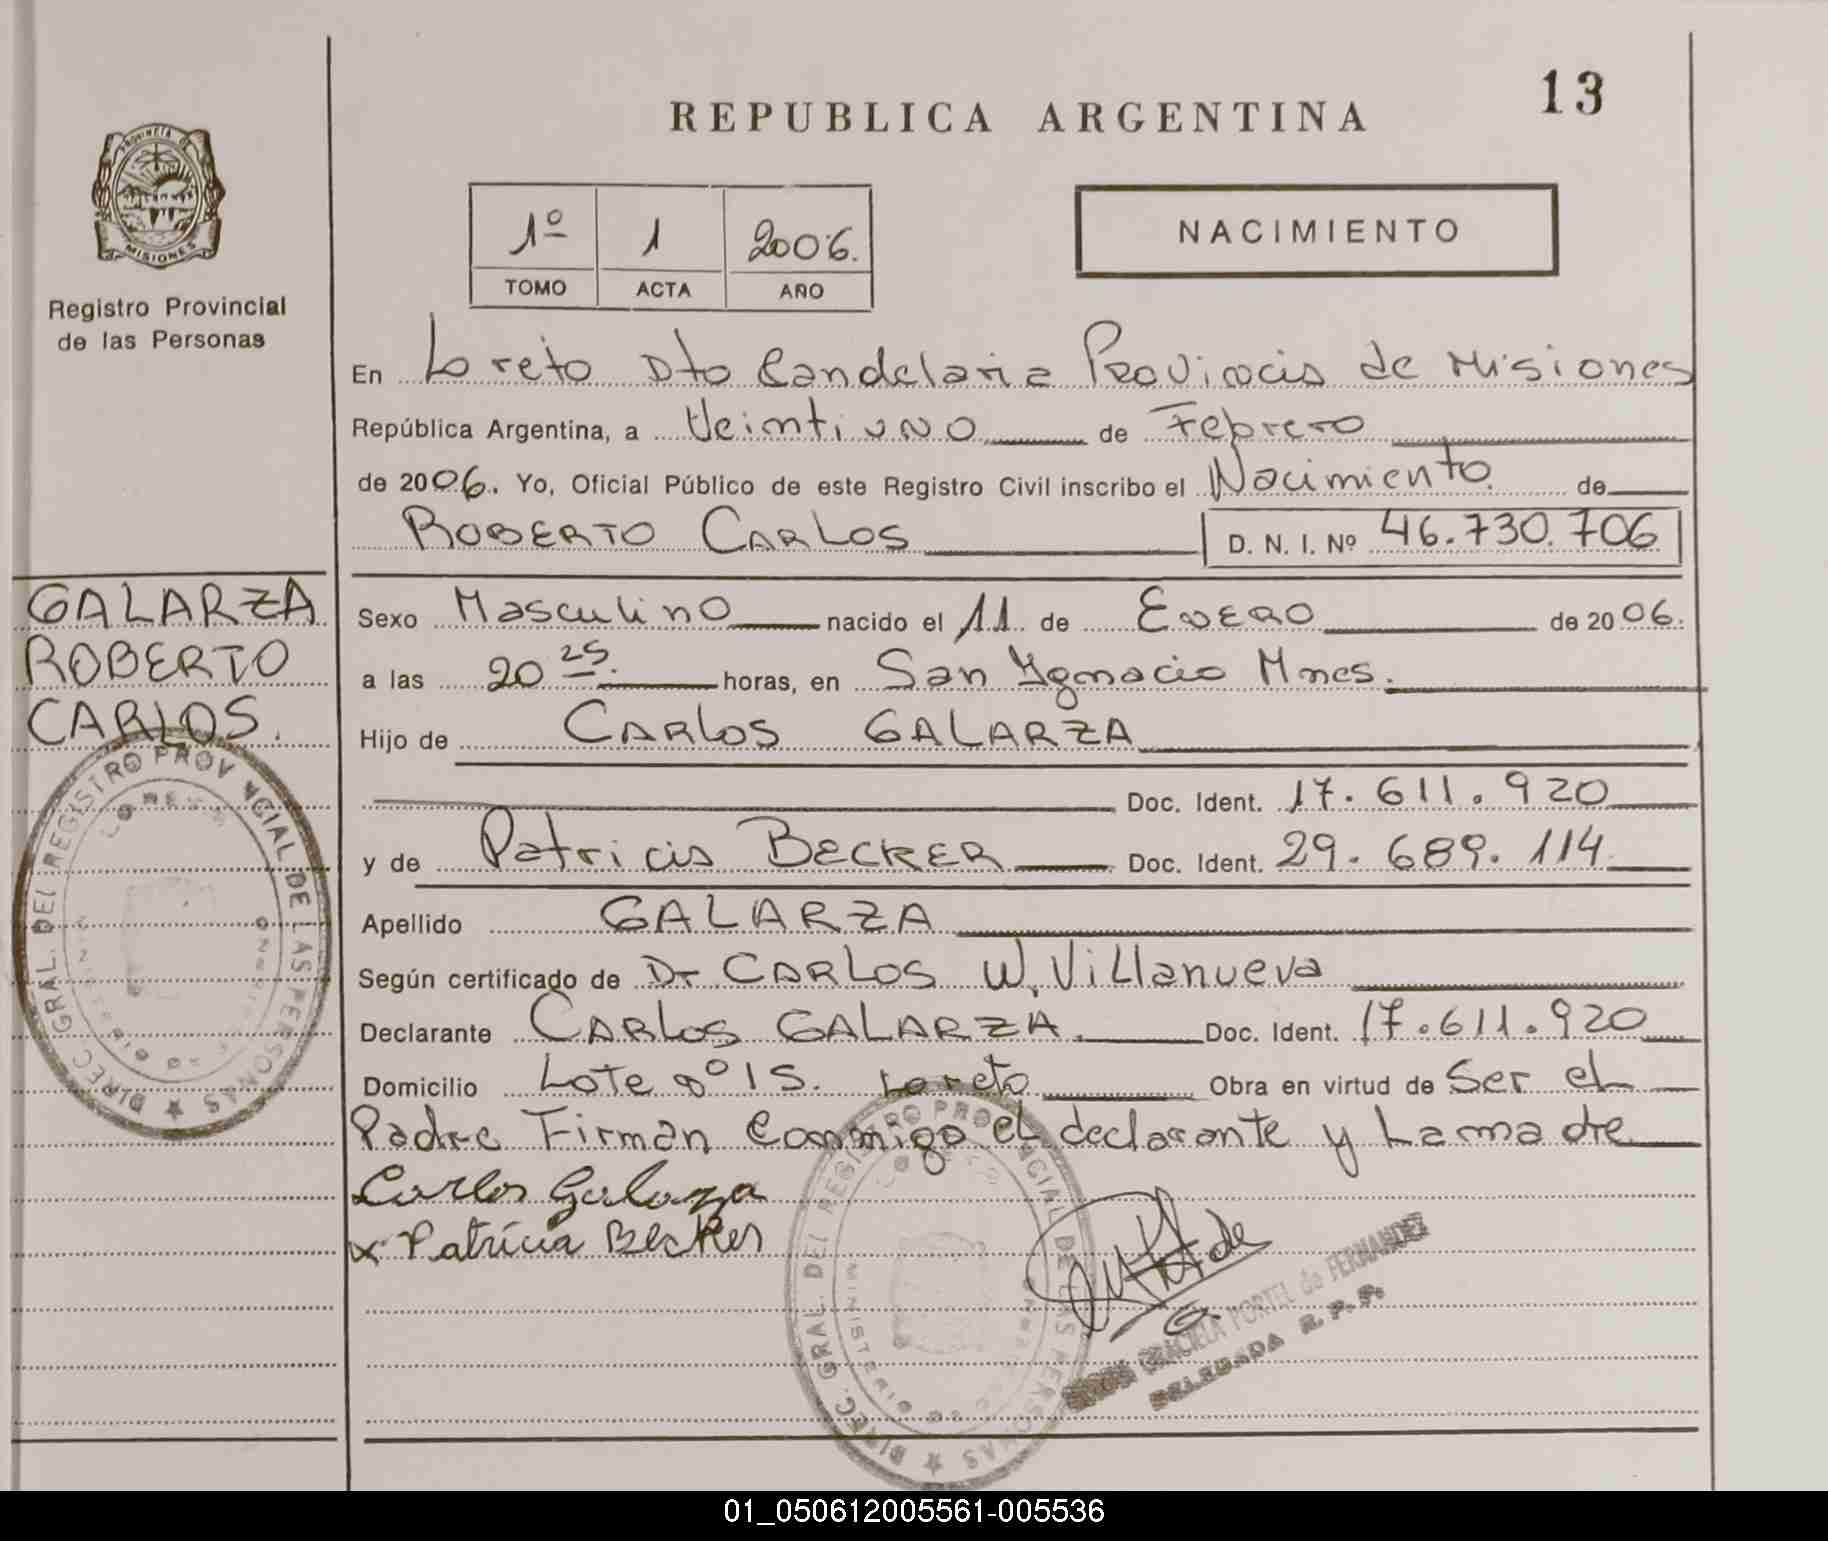 13
REPUBLICA ARGENTINA
PROVINCIA DE
MISIONES
Registro Provincial
de las Personas
1º 1 2006.
TOMO ACTA AÑO
NACIMIENTO
En Loreto Dto Candelaria Provincia de Misiones
República Argentina, a Veintiuno de Febrero
de 2006. Yo, Oficial Público de este Registro Civil inscribo el Nacimiento de
ROBERTO CARLOS D. N. I. Nº 46.730.706
GALARZA
ROBERTO
CARLOS.
Sexo Masculino nacido el 11 de ENERO de 2006.
a las 20 25. horas, en San Ygnacio Mnes.
Hijo de CARLOS GALARZA
Doc. Ident. 17.611.920
y de Patricia BECKER Doc. Ident. 29.689.114
Apellido GALARZA
Según certificado de Dr CARLOS W. Villanueva
Declarante CARLOS GALARZA. Doc. Ident. 17.611.920
Domicilio Lote nº 15. Loreto Obra en virtud de Ser el
Padre Firman Conmigo el declarante y La madre
Carlos Galarza
x Patricia Becker
DIREC. GRAL. DEL REGISTRO PROVINCIAL DE LAS PERSONAS
LORETO
DIREC. GRAL. DEL REGISTRO PROVINCIAL DE LAS PERSONAS
MINISTERIO DE
GRACIELA PORTEL de FERNANDEZ
DELEGADA R. P. P.
01_050612005561-005536